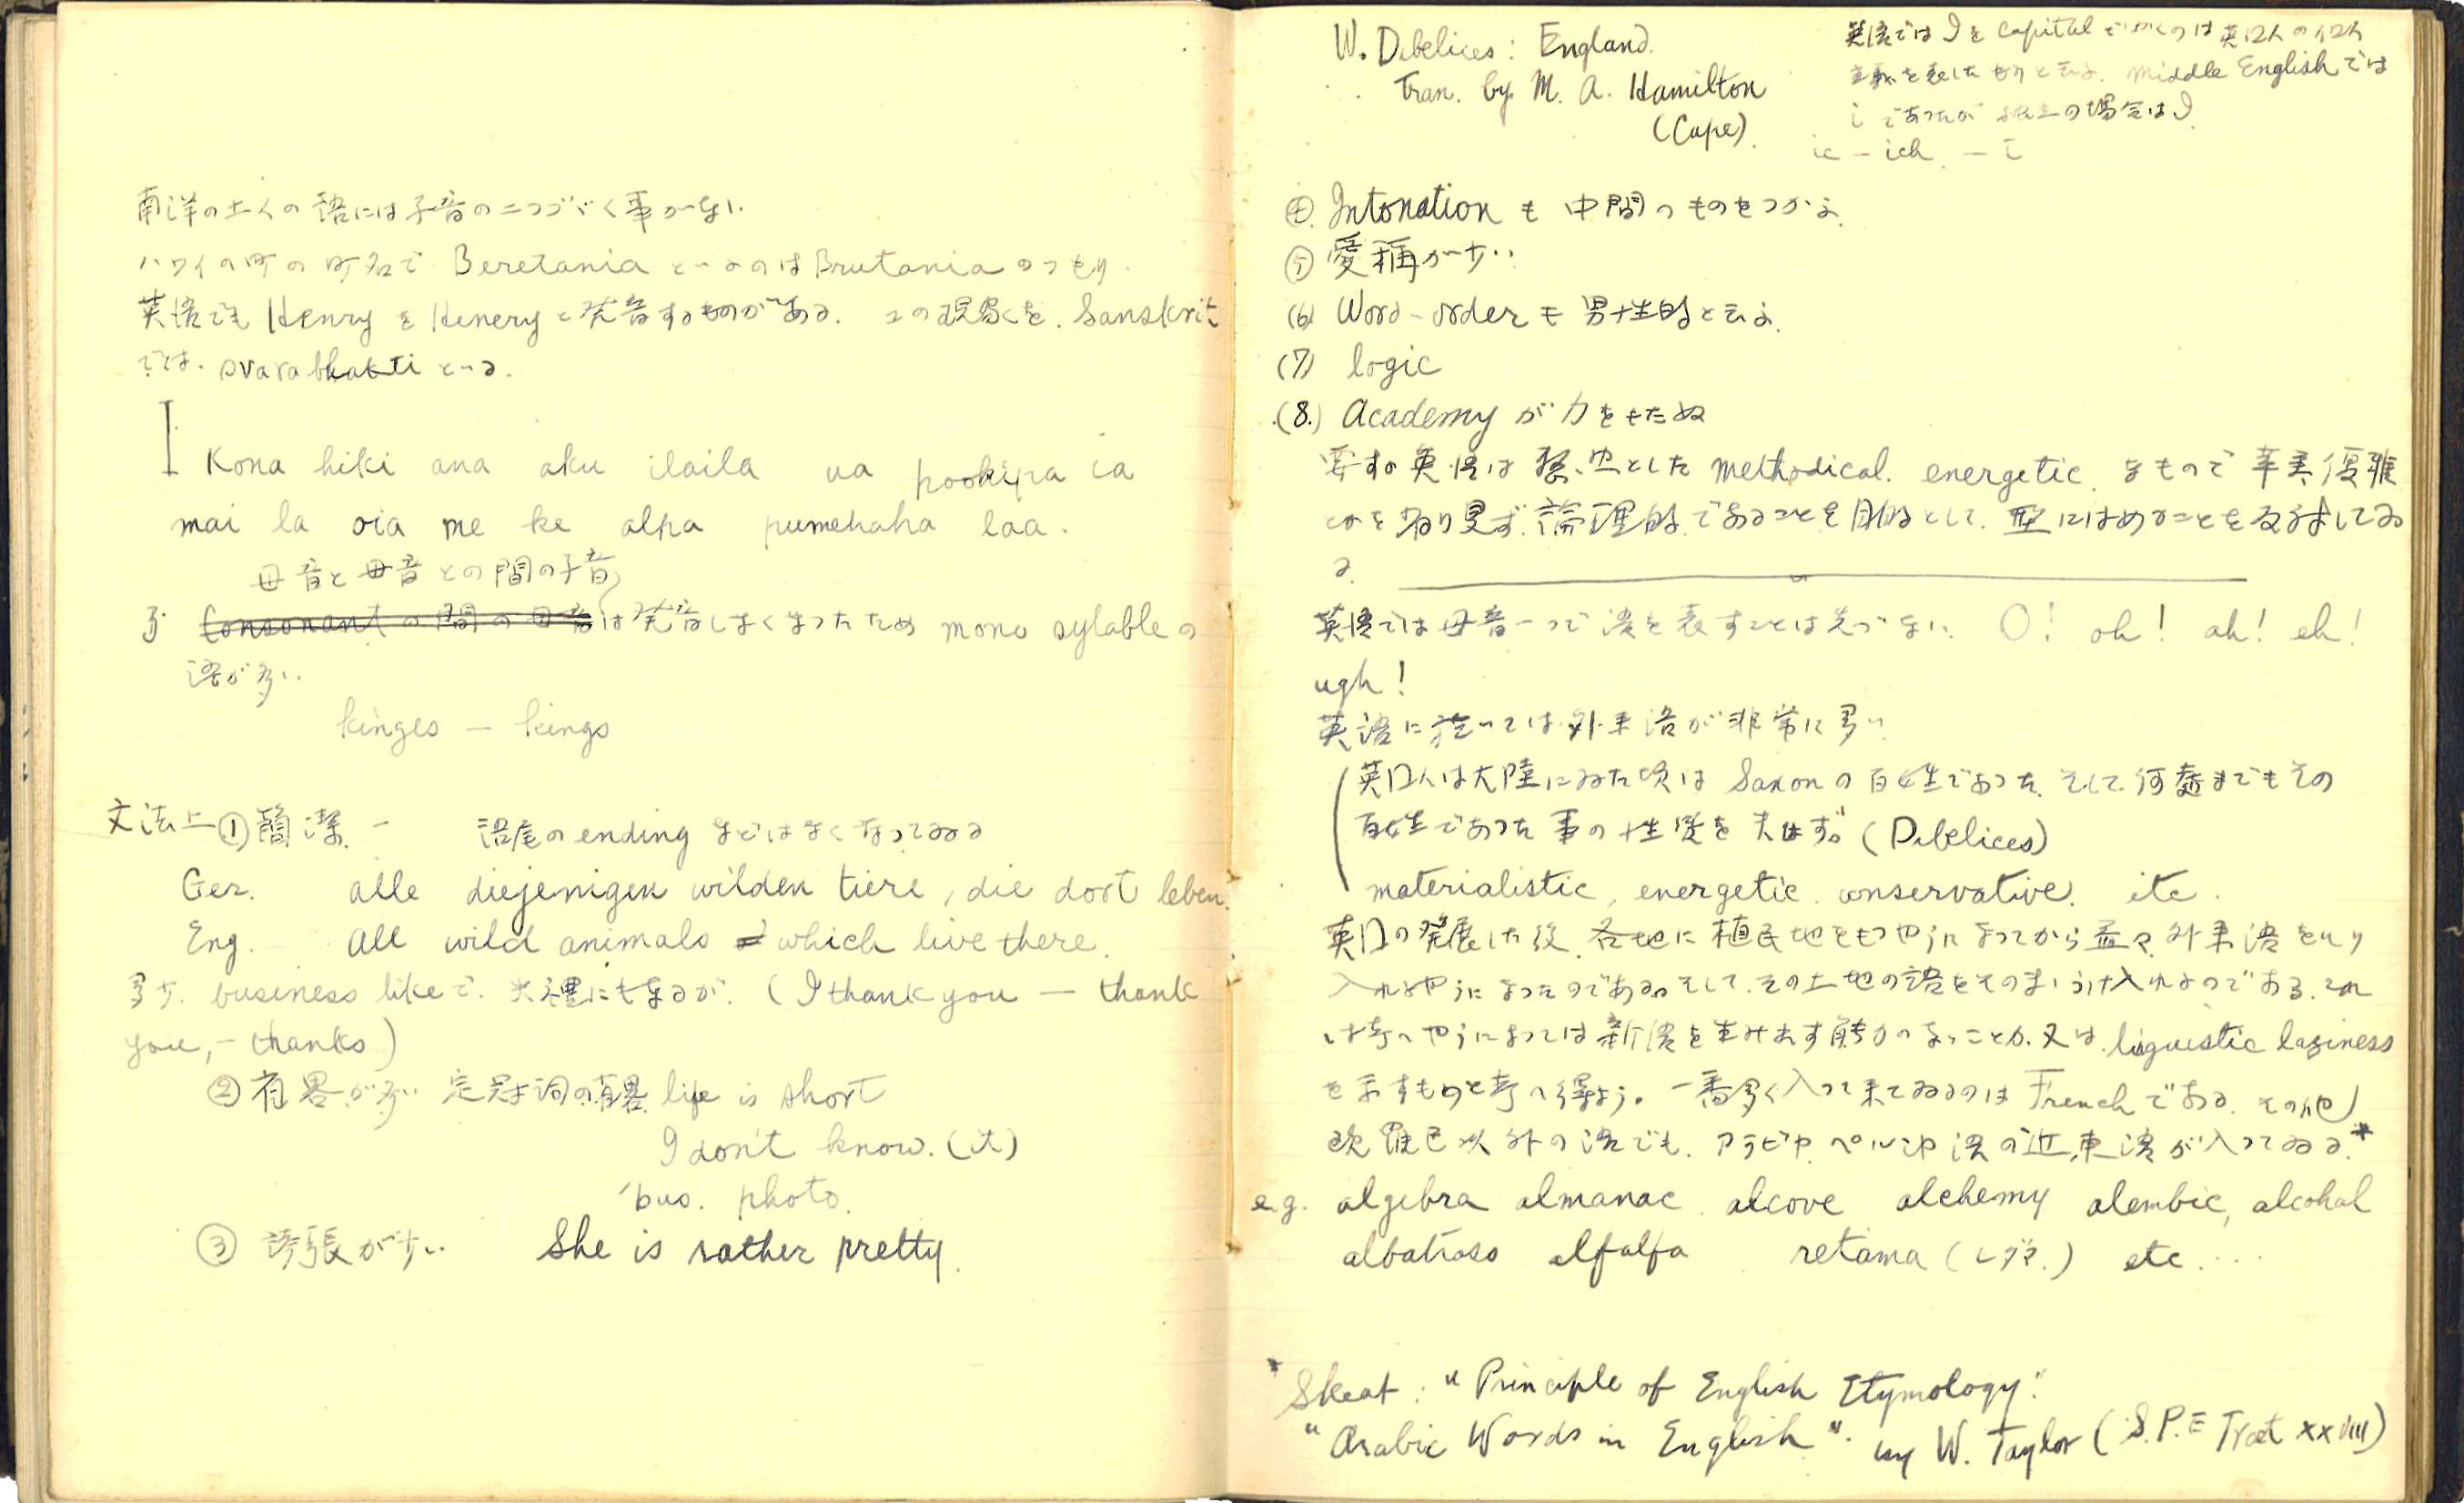 南洋の土人の語には子音の二つづく事がない
ハワイの町の町名で Beretania といふのは Brutania のつもり.
英語でも Henry を Henery と発音するものがある. この現象を. Sanskrit
では. svarabhakti といふ.
Kona hiki ana aku ilaila ua pookipa ia
mai la oia me ke alpa pumehaha laa.
母音と母音との間の子音
Consonant の間の母音は発音しなくなったため mono sylable の
語が多い.
kinges — kings
文法上 ① 簡潔. — 語尾の ending などはなくなってゐる
Ger. alle diejenigen wilden tiere, die dort leben.
Eng. All wild animals which live there.
business like で. 失礼にもなるが. (I thank you — thank
you, — thanks)
② 省畧が多い 定冠詞の省畧 life is short
I don't know. (it)
'bus. photo.
③ 誇張が少い She is rather pretty.
W. Dibelices: England.
Tran. by M. A. Hamilton
(Cape).
英語では I を Capital でかくのは英国人の個人
主義を表した ものと云ふ. Middle English では
i であったが 独立の場合は I.
ic — ich. — i
④. Intonation も 中間のものをつかふ.
⑤ 愛称が少い
(6) Word-order も 男性的と云ふ.
(7) logic
(8.) Academy が力をもたぬ
要するに英語は methodical. energetic. なもので 華美優雅
とかを顧り見ず. 論理的であることを目的として. 型にはめることを反対してゐ
る.
英語では母音一つで語を表すことは先づない. O! oh! ah! eh!
ugh!
英語に於いては外来語が非常に多い
英国人は大陸にゐた頃は Saxon の百姓であった. そして何處までもその
百姓であった事の性質を失はず。(Dibelices)
materialistic, energetic. conservative. etc.
英国の発展した後. 各地に植民地をもつやうになってから益々外来語をとり
入れるやうになったのである。そして. その土地の語をそのまゝうけ入れるのである. これ
は考へやうによっては新語を生み出す能力のないことか. 又は. liguistic laziness
を示すものと考へ得よう。一番多く入って来てゐるのは French である. その他
欧羅巴以外の語でも. アラビヤ. ペルシヤ語の近東語が入ってゐる.*
e.g. algebra almanac. alcove alchemy alembic, alcohal
albatross alfalfa retama (レダマ.) etc. ...
* Skeat: "Principle of English Etymology."
"Arabic Words in English". by W. Taylor (S.P.E Tract xxviii)